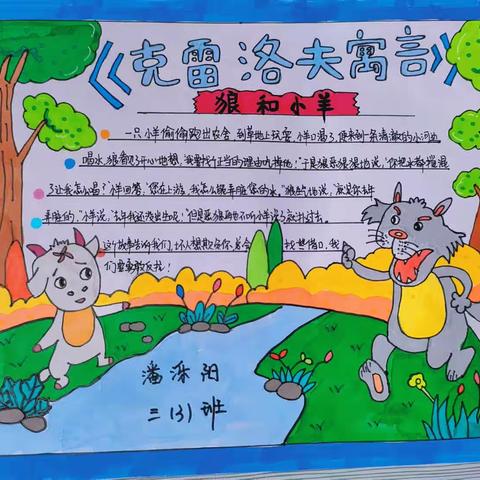 《克雷洛夫寓言》
狼和小羊
一只小羊偷偷跑出农舍，到草地上玩耍，小羊口渴了，便来到一条清澈的小河边
喝水，狼看见了开心地想，我要找个正当的理由吃掉他，"于是狼恶狠狠地说，"你把水搅混
了让我怎么喝？"小羊回答，"您在上游，我怎么能弄脏您的水。"狼
弄脏的，"小羊说，"去年我还没出生呢！"但是恶狼再也不听小羊说了就扑过去。
这故事告诉我们，坏人想欺负你，总会找些借口，我
们要勇敢反抗！
潘泺阳
三（3）班